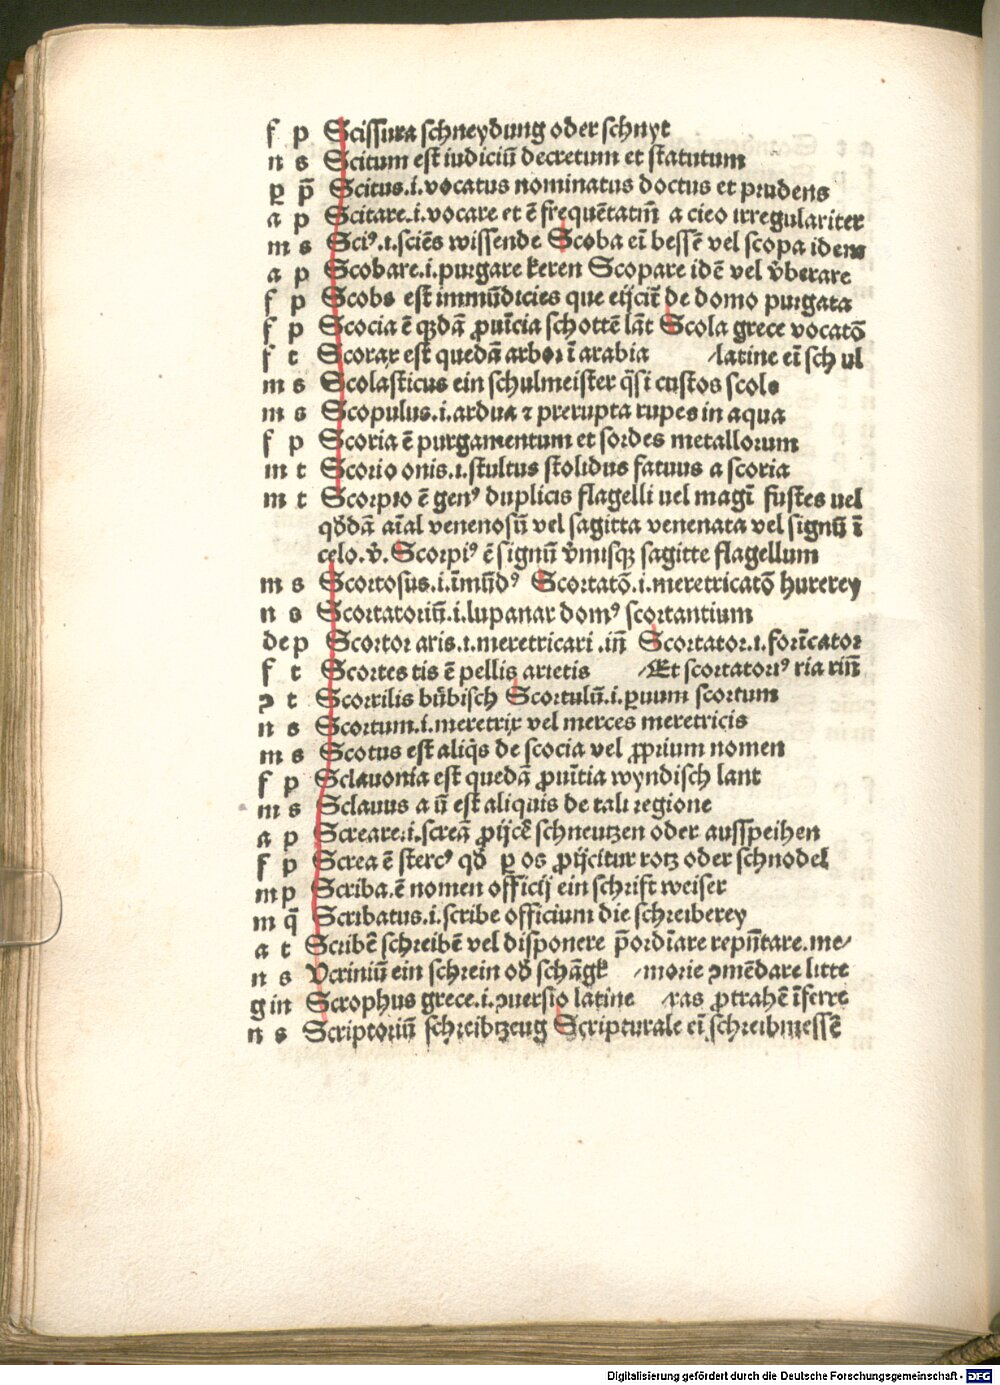 f p Scissura schneydung oder schnyt
n s Scitum est iudiciū decretum et statutum
ꝑ p̄ Scitus.i.vocatus nominatus doctus et prudens
a p Scitare.i.vocare et ē frequētatiū a cieo irregulariter
m s Sciꝰ.i.sciēs wissende Scoba eī bessē vel scopa idem
a p Scobare.i.purgare keren Scopare idē vel v̄berare
f p Scobs est immūdicies que eijcit̄ de domo purgata
f p Scocia ē q̄dā ꝓuīcia schottē lāt Scola grece vocatō
f t Scorax est quedā arbor ī arabia /latine eī schul
m s Scolasticus ein schulmeister q̄si custos scole
m s Scopulus.i.ardua ⁊ prerupta rupes in aqua
f p Scoria ē purgamentum et sordes metallorum
m t Scorio onis.i.stultus stolidus fatuus a scoria
m t Scorpio ē genꝰ duplicis flagelli uel magī fustes uel
qd̄dā aīal venenosū vel sagitta venenata vel signū ī
celo.v̄. Scorpiꝰ ē signū v̄misqꝫ sagitte flagellum
m s Scortosus.i.īmūdꝰ Scortatō.i.meretricatō hurerey
n s Scortatoriū.i.lupanar domꝰ scortantium
dep Scortor aris.i.meretricari .in̄ Scortator.i.forīcator
f t Scortes tis ē pellis arietis /Et scortatoriꝰ ria riū
ꝯ t Scorrilis bübisch Scortulū.i.ꝑuum scortum
n s Scortum.i.meretrix vel merces meretricis
m s Scotus est aliq̄s de scocia vel ꝓprium nomen
f p Sclauonia est quedā ꝓuītia wyndisch lant
m s Sclauus a ū est aliquis de tali regione
a p Screare.i.screā ꝓijcē schneutzen oder ausspeihen
f p Screa ē stercꝰ qd̄ ꝑ os ꝓijcitur rotz oder schnodel
m p Scriba.ē nomen officij ein schrift weiser
m q̄ Scribatus.i.scribe officium die schreiberey
a t Scribē schreibē vel disponere p̄ordīare repn̄tare.me/
n s Vcriniū ein schrein od̄ schāgk /morie ꝯmēdare litte
g in Scrophus grece.i.ꝯuersio latine /ras ꝓtrahē īferre
n s Scriptoriū schreibtzeug Scripturale eī schreibmessē
Digitalisierung gefördert durch die Deutsche Forschungsgemeinschaft - DFG